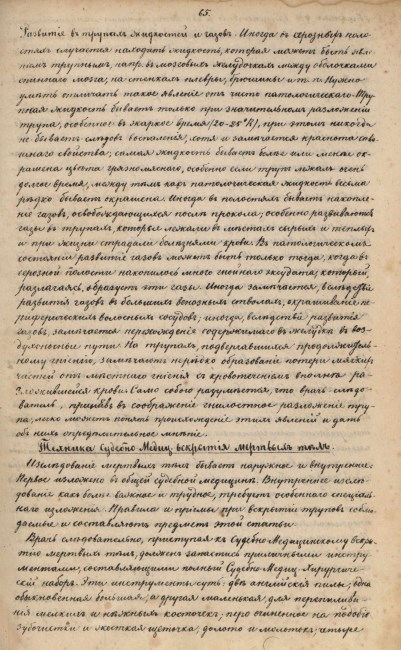 65.
Развитіе въ трупахъ жидкостей и газовъ. Иногда въ серозныхъ поло-
стяхъ случается находить жидкость, которая можетъ быть явле-
ніемъ трупнымъ, напр. въ мозговыхъ желудочкахъ между оболочками
спиннаго мозга, на стенкахъ плевры, брюшины и т. п. Нужно
умѣть отличать такое явленіе отъ чисто патологическаго. Тру-
пная жидкость бываетъ только при значительномъ разложеніи
трупа, особенно въ жаркое время (20-25° R), при этомъ никогда
не бываетъ слѣдовъ воспаленія, хотя и замѣчается краснота
свойства; самая жидкость бываетъ болѣе или менѣе ок-
рашена цвѣта грязноватаго, особенно если трупъ лежалъ очень
долгое время, между тѣмъ какъ патологическая жидкость весьма
рѣдко бываетъ окрашена. Иногда въ полостяхъ бываетъ накопле-
ніе газовъ, освобождающихся послѣ прокола; особенно развиваются
газы въ трупахъ, которые лежали въ мѣстахъ сырыхъ и теплыхъ,
и при жизни страдали болѣзнями крови. Въ патологическомъ
состояніи развитіе газовъ можетъ быть только тогда, когда въ
серозной полости накопилось много гнойнаго эксудата, который,
разлагаясь, образуетъ эти газы. Иногда замѣчается, вслѣдствіе
развитія газовъ въ большихъ венозныхъ стволахъ, окрашиваніе пе-
риферическихъ волосныхъ сосудовъ; иногда, вслѣдствіе развитія
газовъ, замѣчается перехожденіе содержимаго въ желудкѣ въ воз-
духоносные пути. На трупахъ, подвергавшихся продолжитель-
ному гніенію, замѣчаютъ нерѣдко образованіе потери мягкихъ
частей отъ мѣстнаго гніенія съ кровотеченіемъ вполнѣ ра-
зложившейся крови. Само собою разумѣется, что врачъ-слѣдо-
ватель, принявъ въ соображеніе гнилостное разложеніе тру-
па, легко можетъ понять происхожденіе этихъ явленій и дать
объ нихъ опредѣлительное мнѣніе.
Техника судебно Медиц. вскрытія мертвыхъ тѣлъ.
Изслѣдованіе мертвыхъ тѣлъ бываетъ наружное и внутреннее.
Первое изложено въ общей судебной медицинѣ. Внутреннее изслѣ-
дованіе какъ болѣе важное и трудное, требуетъ особеннаго спеціаль-
наго изложенія. Правила и пріемы при вскрытіи труповъ соблю-
даемые и составляютъ предметъ этой статьи.
Врачъ слѣдовательно, приступая къ Судебно Медицинскому вскры-
тію мертвыхъ тѣлъ, долженъ запастись приличными инстру-
ментами, составляющими полный Судебно-Медиц.-Хирургиче-
скій наборъ. Эти инструменты суть: двѣ англійскія пилы; одна
обыкновенная большая, а другая маленькая, для перепилива-
нія мелкихъ и нѣжныхъ косточекъ, перо очиненное на подобіе
зубочистки и жесткая щеточка, долото и молотокъ, четыре